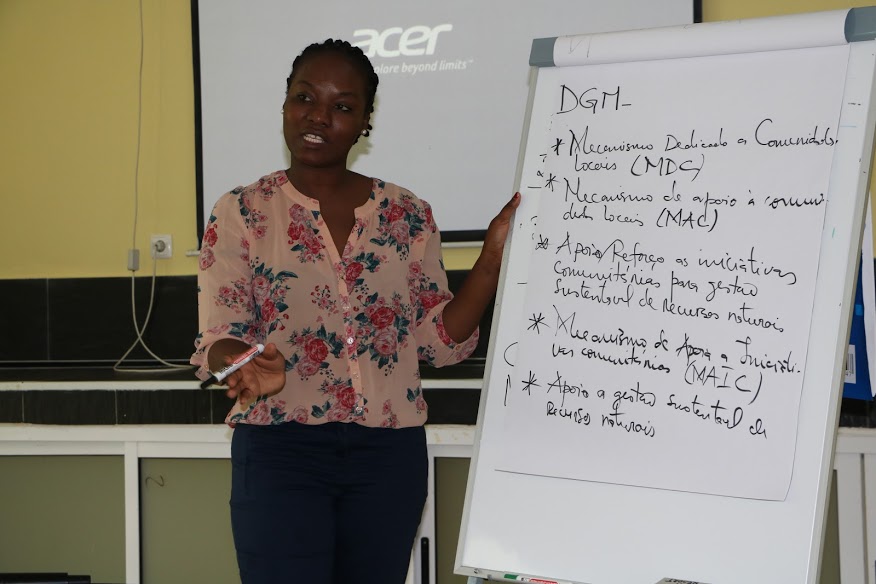 acer
explore beyond limits™
DGM-
* Mecanismo Dedicado a Comunidades
locais (MDC)
* Mecanismo de apoio à comuni-
dades locais (MAC)
* Apoio/Reforço as iniciativas
comunitárias para gestão
sustentavel de recursos naturais
* Mecanismo de Apoio a Iniciati-
vas comunitárias (MAIC)
* Apoio a gestão sustentavel de
Recursos naturais